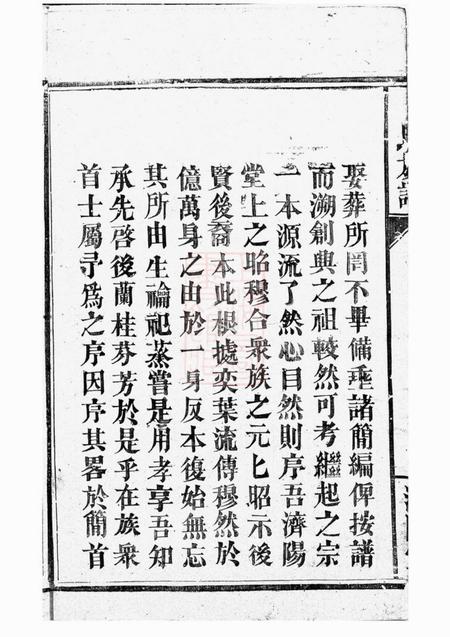 娶葬所罔不畢備垂諸簡編俾按譜
而溯創興之祖較然可考繼起之宗
一本源流了然心目然則序吾濟陽
堂上之昭穆合衆族之元匕昭示後
賢後裔本此根據奕葉流傳穆然於
億萬身之由於一身反本復始無忘
其所由生禴祀蒸嘗是用孝享吾知
承先啓後蘭桂芬芳於是乎在族衆
首士屬予爲之序因序其畧於簡首